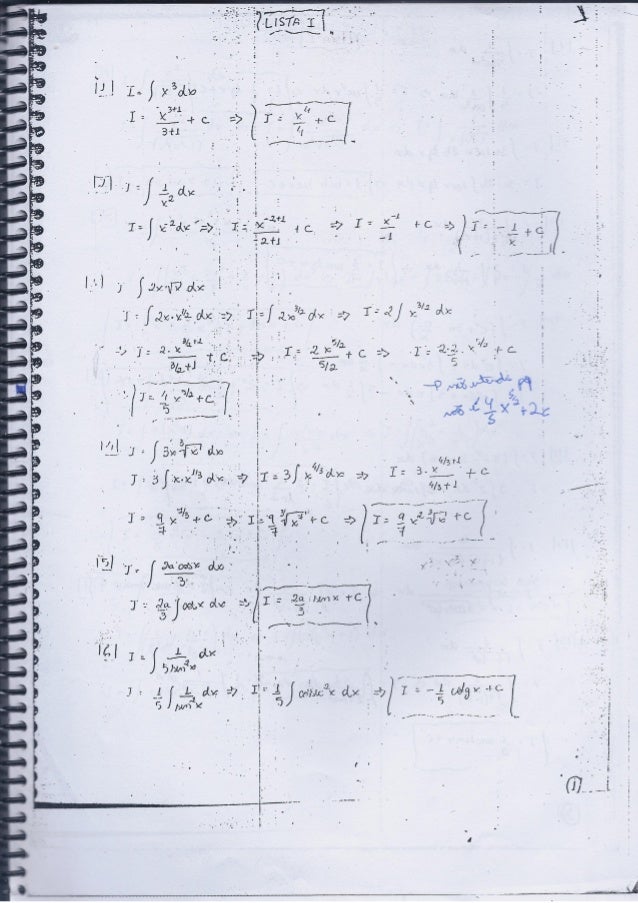 LISTA I
|1| I = ∫ x³ dx
I = x^(3+1)/(3+1) + C ⇒ I = x⁴/4 + C
|2| I = ∫ 1/x² dx
I = ∫ x^(-2) dx ⇒ I = x^(-2+1)/(-2+1) + C ⇒ I = x^(-1)/(-1) + C ⇒ I = -1/x + C
∫ 2x√x dx
I = ∫ 2x·x^(1/2) dx ⇒ I = ∫ 2x^(3/2) dx ⇒ I = 2∫ x^(3/2) dx
⇒ I = 2·x^(3/2+1)/(3/2+1) + C ⇒ I = 2x^(5/2)/(5/2) + C ⇒ I = 2·2/5·x^(5/2) + C
I = 4/5 x^(5/2) + C
→ não entendi pq
não é 4/5 x^(5/2) + 2c
|4| I = ∫ 3x ∛x dx
I = 3∫ x·x^(1/3) dx ⇒ I = 3∫ x^(4/3) dx ⇒ I = 3·x^(4/3+1)/(4/3+1) + C
I = 9/7 x^(7/3) + C ⇒ I = 9/7 ∛x⁷ + C ⇒ I = 9/7 x² ∛x + C
|5| I = ∫ 2a cosx/3 dx
I = 2a/3 ∫ cosx dx ⇒ I = 2a/3 senx + C
|6| I = ∫ 1/(5sen²x) dx
I = 1/5 ∫ 1/sen²x dx ⇒ I = 1/5 ∫ cossec²x dx ⇒ I = -1/5 cotgx + C
(1)